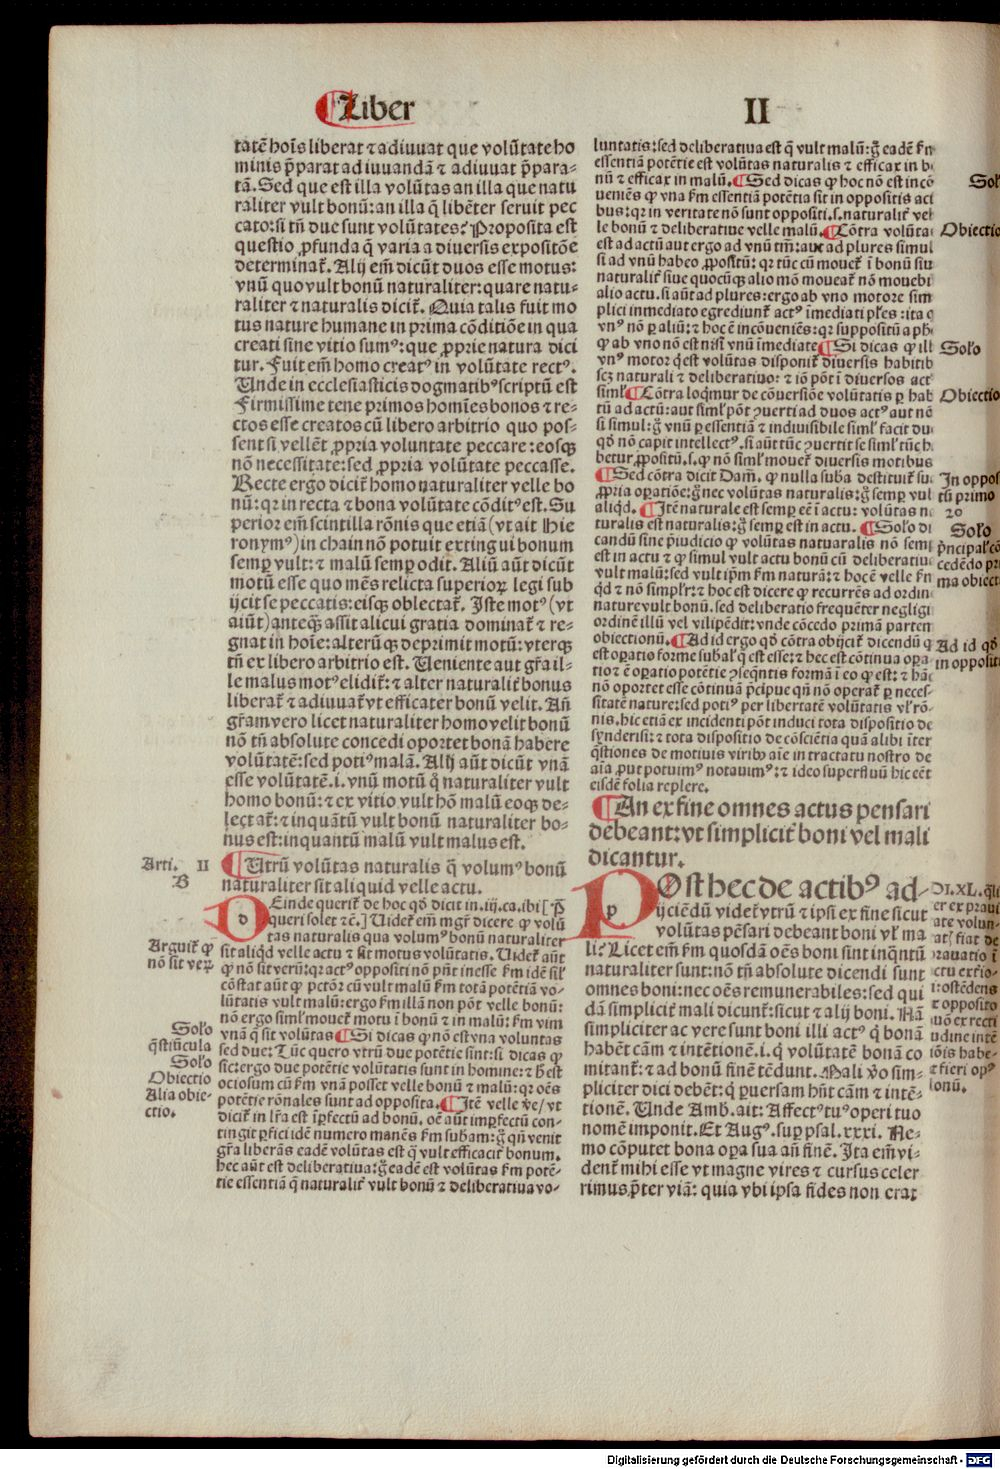 ¶Liber
II
tatē hoīs liberat ⁊ adiuuat que volūtate ho
minis p̄parat ad iuuandā ⁊ adiuuat p̄para-
tā. Sed que est illa volūtas an illa que natu
raliter vult bonū: an illa q̄ libēter seruit pec
cato: si tn̄ due sunt volūtates? Proposita est
questio ꝓfunda q̄ varia a diuersis expositōe
determinat᷑. Alij em̄ dicūt duos esse motus:
vnū quo vult bonū naturaliter: quare natu-
raliter ⁊ naturalis dicit᷑. Quia talis fuit mo
tus nature humane in prima cōditiōe in qua
creati sine vitio sumꝰ: que ꝓprie natura dici
tur. Fuit em̄ homo creatꝰ in volūtate rectꝰ.
Unde in ecclesiasticis dogmatibꝰ scriptū est
Firmissime tene primos homīes bonos ⁊ re-
ctos esse creatos cū libero arbitrio quo pos-
sent si vellēt ꝓpria voluntate peccare: eosqꝫ
nō necessitate: sed ꝓpria volūtate peccasse.
Recte ergo dicit᷑ homo naturaliter velle bo
nū: qꝛ in recta ⁊ bona volūtate cōditꝰ est. Su
perior em̄ scintilla rōnis que etiā (vt ait Hie
ronymꝰ) in chain nō potuit extingui bonum
semꝑ vult: ⁊ malū semꝑ odit. Aliū aūt dicūt
motū esse quo mēs relicta superioꝝ legi sub
ijcit se peccatis: eisqꝫ oblectat᷑. Iste motꝰ (vt
aiūt) anteqꝫ assit alicui gratia dominat᷑ ⁊ re-
gnat in hoīe: alterū qꝫ deprimit motū: vterqꝫ
tn̄ ex libero arbitrio est. Ueniente aut gr̄a il-
le malus motꝰ elidit᷑: ⁊ alter naturalit᷑ bonus
liberat᷑ ⁊ adiuuat᷑ vt efficater bonū velit. Añ
gr̄am vero licet naturaliter homo velit bonū
nō tn̄ absolute concedi oportet bonā habere
volūtatē: sed potiꝰ malā. Alij aūt dicūt vnā
esse volūtatē .i. vnū motū q̊ naturaliter vult
homo bonū: ⁊ ex vitio vult hō malū eoqꝫ de-
lectat᷑: ⁊ inquātū vult bonū naturaliter bo-
nus est: inquantū malū vult malus est.
Arti. II
B
¶Utrū volūtas naturalis q̄ volumꝰ bonū
naturaliter sit aliquid velle actu.
DEinde querit᷑ de hoc qd̓ dicit in .iij. ca. ibi [P̄
queri solet ⁊ē.] Uidet᷑ em̄ mgr̄ dicere ꝙ volū
tas naturalis qua volumꝰ bonū naturaliter
Arguit᷑ ꝙ
nō sit veꝝ
sit aliqd̓ velle actu ⁊ sit motus volūtatis. Uidet᷑ aūt
ꝙ nō sit verū: qꝛ actꝰ oppositi nō pn̄t inesse ẜm idē sīl̓
cōstat aūt ꝙ pctōr cū vult malū ẜm totā potētiā vo-
lūtatis vult malū: ergo ẜm illā non pōt velle bonū:
nō ergo siml̓ mouet᷑ motu ī bonū ⁊ in malū: ẜm vim
Sol̓o
vnā q̄ sit volūtas ¶Si dicas ꝙ nō est vna voluntas
q̄stiūcula
sed due: Tūc quero vtrū due potētie sint: si dicas ꝙ
Sol̓o
sic: ergo due potētie volūtatis sunt in homine: ⁊ h̓ est
Obiectio
ociosum cū ẜm vnā posset velle bonū ⁊ malū: qꝛ oēs
Alia obie-
potētie rōnales sunt ad opposita. ¶Itē velle v̄e/ vt
ctio.
dicit᷑ in lr̄a est īꝑfectū ad bonū. oē aūt imꝑfectū con-
tingit ꝑfici idē numero manēs ẜm subam: g̊ qn̄ venit
gr̄a liberās eadē volūtas est q̄ vult efficacit᷑ bonum.
hec aūt est deliberatiua: g̊ eadē est volūtas ẜm potē-
tie essentiā q̄ naturalit᷑ vult bonū ⁊ deliberatiua vo-
luntatis: sed deliberatiua est q̄ vult malū: g̊ eadē ẜm
essentiā potētie est volūtas naturalis ⁊ efficax in b
nū ⁊ efficax in malū. ¶Sed dicas ꝙ hoc nō est incō
Sol
ueniēs ꝙ vna ẜm essentiā potētia sit in oppositis acti
bus: qꝛ in veritate nō sunt oppositi .s. naturalit᷑ vel
le bonū ⁊ deliberatiue velle malū. ¶Cōtra volūta
Obiectio
est ad actū aut ergo ad vnū tm̄: aut ad plures simul
si ad vnū habeo ꝓpositū: qꝛ tūc cū mouet᷑ ī bonū siu
naturalit᷑ siue quocūqꝫ alio mō moueat᷑ nō mouebi
alio actu. si aūt ad plures: ergo ab vno motore sim
plici inmediato egrediunt᷑ actꝰ īmediati pl̓es: ita
vnꝰ nō ꝑ aliū: ⁊ hoc ē incōueniēs: qꝛ suppositū a ph
ꝙ ab vno nō est nisi vnū īmediate ¶Si dicas ꝙ ill
Sol̓o
vnꝰ motor q̓ est volūtas disponit᷑ diuersis habitib
scꝫ naturali ⁊ deliberatiuo: ⁊ iō pōt ī diuersos act
siml̓ ¶Cōtra loqimur de cōuersiōe volūtatis ꝑ hab
Obiectio
tū ad actū: aut siml̓ pōt ꝯuerti ad duos actꝰ aut nō
si simul: g̊ vnū ꝑ essentiā ⁊ indiuisibile siml̓ facit du
qd̓ nō capit intellectꝰ. si aūt tūc ꝯuertit se siml̓ tūc h
betur ꝓpositū .s. ꝙ nō siml̓ mouet᷑ diuersis motibus
¶Sed cōtra dicit Dam̄. ꝙ nulla suba destituit᷑ su
In oppos
ꝓpria oꝑatiōe: g̊ nec volūtas naturalis: g̊ semꝑ vul
tū primo
aliqd̓. ¶Itē naturale est semꝑ eē ī actu: voluntas n
2o
turalis est naturalis: g̊ semꝑ est in actu. ¶Solo di
Sol̓o
candū sine p̄iudicio ꝙ volūtas natuaralis nō semꝑ
p̄ncipal̓ cō
est in actu ⁊ ꝙ simul vult actu bonū cū deliberatiu
cedēdo pri
vult malū: sed vult ip̄m ẜm naturā: ⁊ hoc ē velle ẜm
ma obiect
qd̓ ⁊ nō simpl̓r: ⁊ hoc est dicere ꝙ recurrēs ad ordin
nature vult bonū. sed deliberatio frequēter negligi
ordinē illū vel vilipēdit: vnde cōcedo primā partem
obiectionū. ¶Ad id ergo qd̓ cōtra obijcit᷑ dicendū
Ad id qd̓
est oꝑatio forme subal̓ q̄ est esse: ⁊ hec est cōtinua oꝑa
in opposit
tio ⁊ ē oꝑatio potētie ꝯseqn̄tis formā ī eo ꝙ est: ⁊ hāc
nō oportet esse cōtinuā p̄cipue qn̄ nō operat᷑ ꝑ neces-
sitatē nature: sed potiꝰ per libertatē volūtatis vl̓ rō-
nis. hic etiā ex incidenti pōt induci tota dispositio de
synderisi: ⁊ tota dispositio de cōsciētia quā alibi īter
q̄stiones de motiuis viribꝰ aīe in tractatu nostro de
aīa ꝓut potuimꝰ notauimꝰ: ⁊ ideo superfluū hic eēt
eisdē folia replere.
¶An ex fine omnes actus pensari
debeant: vt simplicit᷑ boni vel mali
dicantur.
POst hec de actibꝰ ad-
ijciēdū videt᷑ vtrū ⁊ ipsi ex fine sicut
volūtas pēsari debeant boni vl̓ ma
li? Licet em̄ ẜm quosdā oēs boni sint inqn̄tū
naturaliter sunt: nō tn̄ absolute dicendi sunt
omnes boni: nec oēs remunerabiles: sed qui
dā simplicit᷑ mali dicunt᷑: sicut ⁊ alij boni. Nā
simpliciter ac vere sunt boni illi actꝰ q̄ bonā
habēt cām ⁊ intētionē .i. q̄ volūtatē bonā co
mitant᷑: ⁊ ad bonū finē tēdunt. Mali v̄o sim-
pliciter dici debēt: q̄ ꝑuersam hn̄t cām ⁊ intē-
tionē. Unde Amb. ait: Affectꝰ tuꝰ operi tuo
nomē imponit. Et Augꝰ. suꝑ psal. xxxi. Ne-
mo cōputet bona oꝑa sua añ finē. Ita em̄ vi-
dent᷑ mihi esse vt magne vires ⁊ cursus celer
rimus p̄ter viā: quia vbi ipsa fides non erat
DI. XL. q̄li
er ex praui
ate volun-
at᷑ fiat de
prauatio ī
ctu exteriō-
i: ostēdens
ex opposito
uō ex recti
udine intē
iōis habe-
t fieri op
ionū.
Digitalisierung gefördert durch die Deutsche Forschungsgemeinschaft - DFG